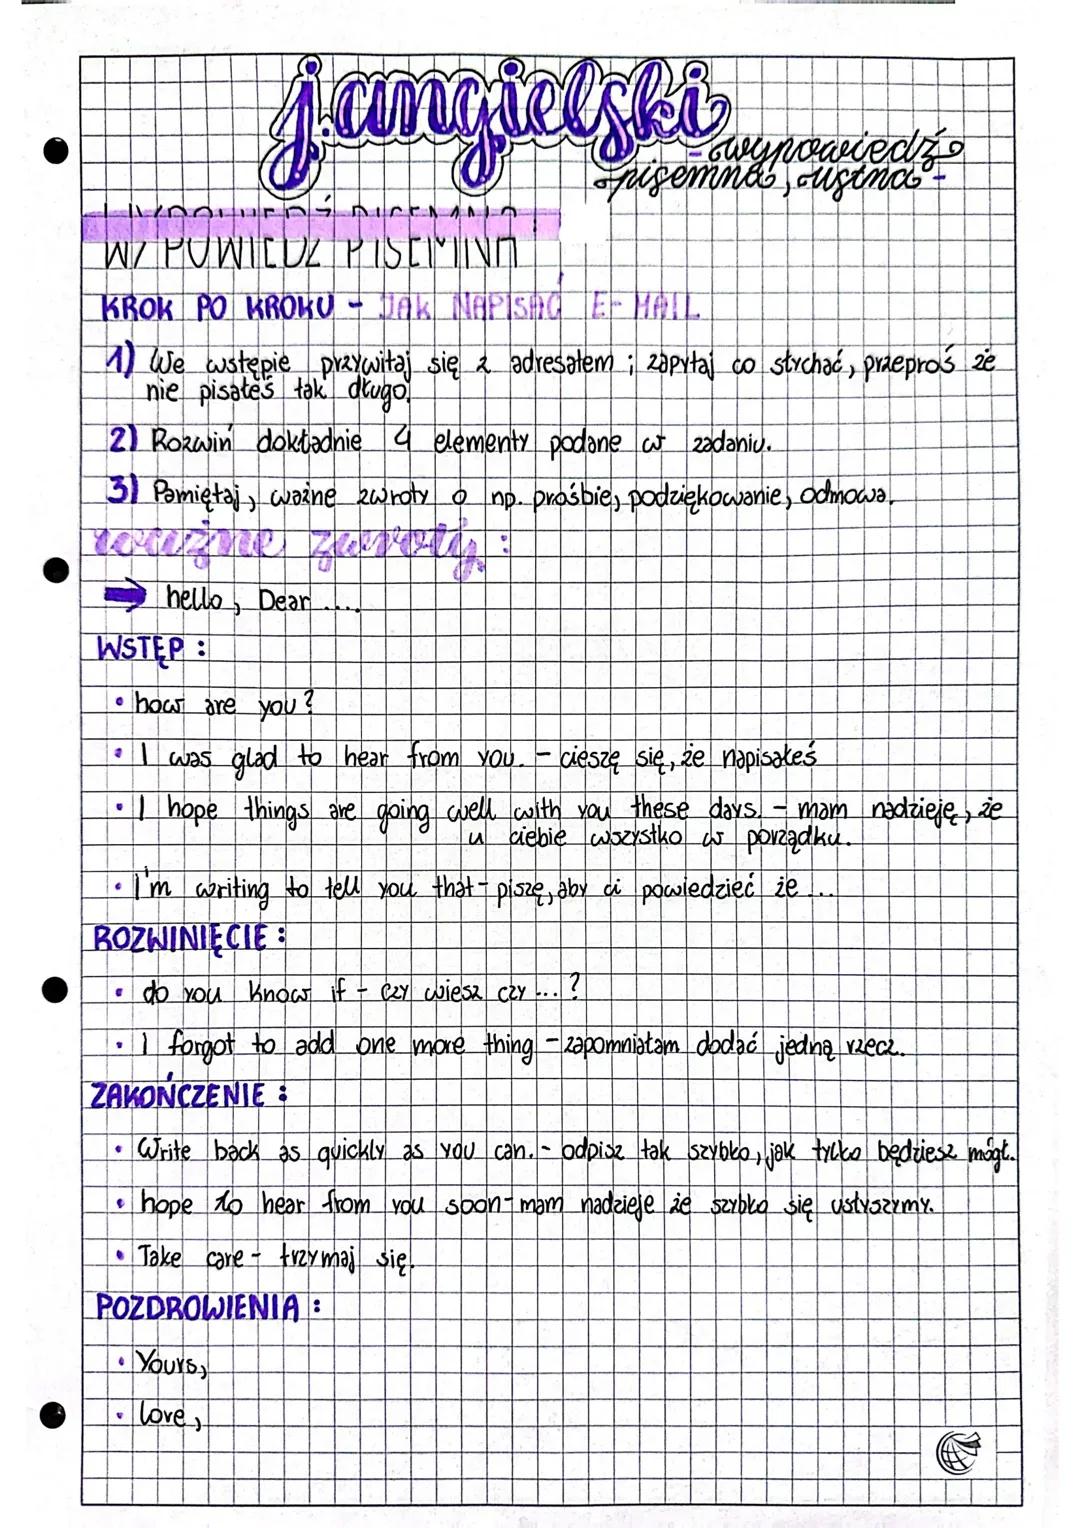 j.angielski
- wypowiedź
pisemna, ustna -
WYPOWIEDŹ PISEMNA
KROK PO KROKU - JAK NAPISAĆ E-MAIL
1) We wstępie przywitaj się z adresatem ; zapytaj co słychać, przeproś że
nie pisałeś tak długo.
2) Rozwiń dokładnie 4 elementy podane w zadaniu.
3) Pamiętaj, ważne zwroty o np. prośbie, podziękowanie, odmowa.
ważne zwroty :
→ hello, Dear ....
WSTĘP :
• how are you?
• I was glad to hear from you. - cieszę się, że napisałeś
• I hope things are going well with you these days. - mam nadzieję, że
u ciebie wszystko w porządku.
• I'm writing to tell you that - piszę, aby ci powiedzieć że ...
ROZWINIĘCIE :
• do you know if - czy wiesz czy ... ?
• I forgot to add one more thing - zapomniałam dodać jedną rzecz.
ZAKOŃCZENIE :
• Write back as quickly as you can. - odpisz tak szybko, jak tylko będziesz mógł.
• hope to hear from you soon - mam nadzieje że szybko się usłyszymy.
• Take care - trzymaj się.
POZDROWIENIA :
• Yours,
• love,